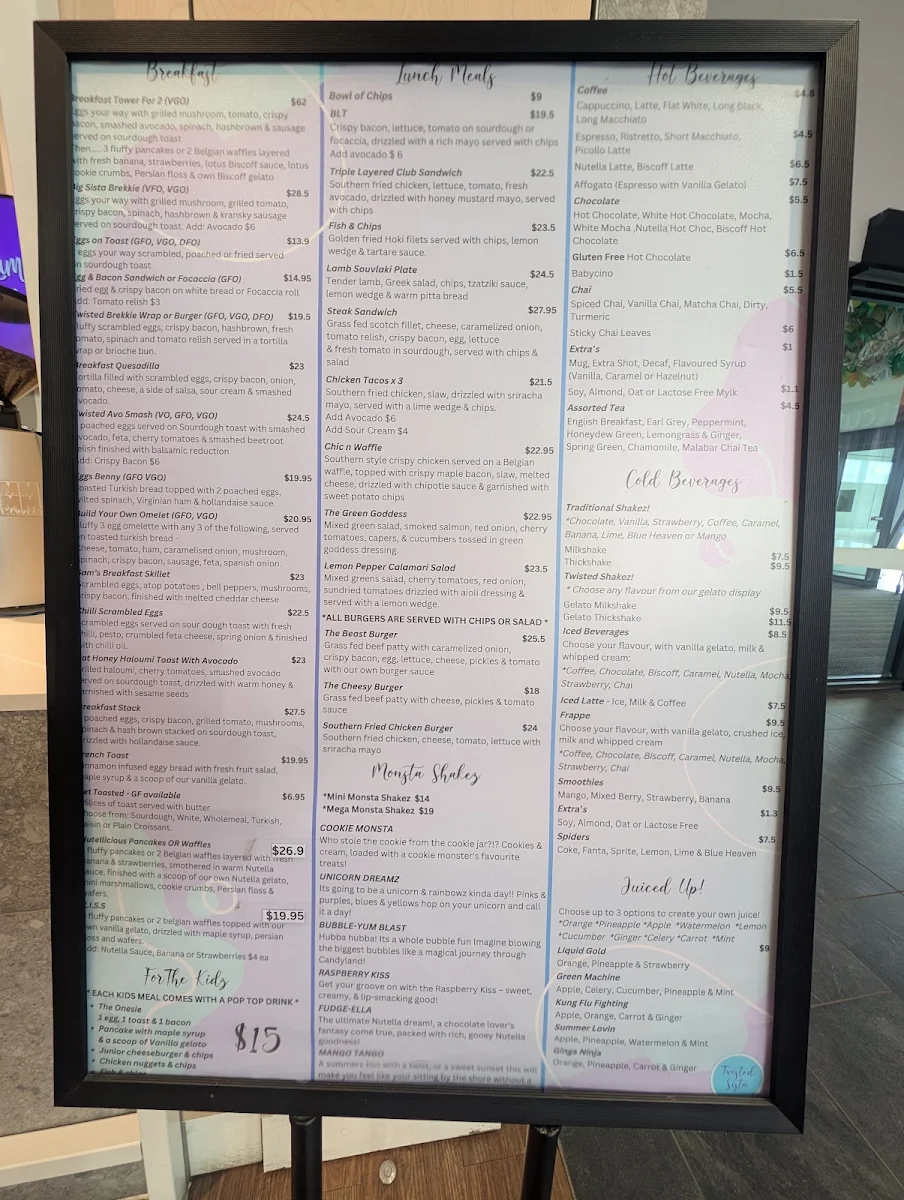 Breakfast
Breakfast Tower For 2 (VGO) $62
Eggs your way with grilled mushroom, tomato, crispy
bacon, smashed avocado, spinach, hashbrown & sausage
served on sourdough toast
Then.... 3 fluffy pancakes or 2 Belgian waffles layered
with fresh banana, strawberries, lotus Biscoff sauce, lotus
cookie crumbs, Persian floss & own Biscoff gelato
Big Sista Brekkie (VFO, VGO) $28.5
Eggs your way with grilled mushroom, grilled tomato,
crispy bacon, spinach, hashbrown & kransky sausage
served on sourdough toast. Add: Avocado $6
Eggs on Toast (GFO, VGO, DFO) $13.9
eggs your way scrambled, poached or fried served
on sourdough toast.
Egg & Bacon Sandwich or Focaccia (GFO) $14.95
Fried egg & crispy bacon on white bread or Focaccia roll
Add: Tomato relish $3
Twisted Brekkie Wrap or Burger (GFO, VGO, DFO) $19.5
Fluffy scrambled eggs, crispy bacon, hashbrown, fresh
tomato, spinach and tomato relish served in a tortilla
wrap or brioche bun.
Breakfast Quesadilla $23
Tortilla filled with scrambled eggs, crispy bacon, onion,
tomato, cheese, a side of salsa, sour cream & smashed
avocado.
Twisted Avo Smash (VO, GFO, VGO) $24.5
poached eggs served on Sourdough toast with smashed
avocado, feta, cherry tomatoes & smashed beetroot
relish finished with balsamic reduction
Add: Crispy Bacon $6
Eggs Benny (GFO VGO) $19.95
Toasted Turkish bread topped with 2 poached eggs,
wilted spinach, Virginian ham & hollandaise sauce.
Build Your Own Omelet (GFO, VGO) $20.95
Fluffy 3 egg omelette with any 3 of the following, served
on toasted turkish bread -
Cheese, tomato, ham, caramelised onion, mushroom,
spinach, crispy bacon, sausage, feta, spanish onion.
Sam's Breakfast Skillet $23
Scrambled eggs, atop potatoes , bell peppers, mushrooms,
crispy bacon, finished with melted cheddar cheese
Chilli Scrambled Eggs $22.5
Scrambled eggs served on sour dough toast with fresh
chilli, pesto, crumbled feta cheese, spring onion & finished
with chilli oil.
Hot Honey Haloumi Toast With Avocado $23
Grilled haloumi, cherry tomatoes, smashed avocado
served on sourdough toast, drizzled with warm honey &
garnished with sesame seeds
Breakfast Stack $27.5
poached eggs, crispy bacon, grilled tomato, mushrooms,
spinach & hash brown stacked on sourdough toast,
drizzled with hollandaise sauce.
French Toast $19.95
Cinnamon infused eggy bread with fresh fruit salad,
maple syrup & a scoop of our vanilla gelato.
Get Toasted - GF available $6.95
Slices of toast served with butter
Choose from: Sourdough, White, Wholemeal, Turkish,
Raisin or Plain Croissant.
Nutellicious Pancakes OR Waffles $26.9
fluffy pancakes or 2 Belgian waffles layered with fresh
banana & strawberries, smothered in warm Nutella
sauce, finished with a scoop of our own Nutella gelato,
mini marshmallows, cookie crumbs, Persian floss &
wafers.
K.I.S.S $19.95
fluffy pancakes or 2 belgian waffles topped with our
own vanilla gelato, drizzled with maple syrup, persian
floss and wafers
Add: Nutella Sauce, Banana or Strawberries $4 ea
For The Kidz
* EACH KIDS MEAL COMES WITH A POP TOP DRINK *
• The Onesie
1 egg, 1 toast & 1 bacon
• Pancake with maple syrup
& a scoop of Vanilla gelato
• Junior cheeseburger & chips
• Chicken nuggets & chips
• Fish & chips
$15
Lunch Meals
Bowl of Chips $9
BLT $19.5
Crispy bacon, lettuce, tomato on sourdough or
focaccia, drizzled with a rich mayo served with chips
Add avocado $ 6
Triple Layered Club Sandwich $22.5
Southern fried chicken, lettuce, tomato, fresh
avocado, drizzled with honey mustard mayo, served
with chips
Fish & Chips $23.5
Golden fried Hoki filets served with chips, lemon
wedge & tartare sauce.
Lamb Souvlaki Plate $24.5
Tender lamb, Greek salad, chips, tzatziki sauce,
lemon wedge & warm pitta bread
Steak Sandwich $27.95
Grass fed scotch fillet, cheese, caramelized onion,
tomato relish, crispy bacon, egg, lettuce
& fresh tomato in sourdough, served with chips &
salad
Chicken Tacos x 3 $21.5
Southern fried chicken, slaw, drizzled with sriracha
mayo, served with a lime wedge & chips.
Add Avocado $6
Add Sour Cream $4
Chic n Waffle $22.95
Southern style crispy chicken served on a Belgian
waffle, topped with crispy maple bacon, slaw, melted
cheese, drizzled with chipotle sauce & garnished with
sweet potato chips
The Green Goddess $22.95
Mixed green salad, smoked salmon, red onion, cherry
tomatoes, capers, & cucumbers tossed in green
goddess dressing.
Lemon Pepper Calamari Salad $23.5
Mixed greens salad, cherry tomatoes, red onion,
sundried tomatoes drizzled with aioli dressing &
served with a lemon wedge.
*ALL BURGERS ARE SERVED WITH CHIPS OR SALAD *
The Beast Burger $25.5
Grass fed beef patty with caramelized onion,
crispy bacon, egg, lettuce, cheese, pickles & tomato
with our own burger sauce
The Cheesy Burger $18
Grass fed beef patty with cheese, pickles & tomato
sauce
Southern Fried Chicken Burger $24
Southern fried chicken, cheese, tomato, lettuce with
sriracha mayo
Monsta Shakez
*Mini Monsta Shakez $14
*Mega Monsta Shakez $19
COOKIE MONSTA
Who stole the cookie from the cookie jar?!? Cookies &
cream, loaded with a cookie monster's favourite
treats!
UNICORN DREAMZ
Its going to be a unicorn & rainbowz kinda day!! Pinks &
purples, blues & yellows hop on your unicorn and call
it a day!
BUBBLE-YUM BLAST
Hubba hubba! Its a whole bubble fun Imagine blowing
the biggest bubbles like a magical journey through
Candyland!
RASPBERRY KISS
Get your groove on with the Raspberry Kiss – sweet,
creamy, & lip-smacking good!
FUDGE-ELLA
The ultimate Nutella dream!, a chocolate lover's
fantasy come true, packed with rich, gooey Nutella
goodness!
MANGO TANGO
A summers kiss with a twist, or a sweet sunset this will
make you feel like your sitting by the shore without a
Hot Beverages
Coffee $4.8
Cappuccino, Latte, Flat White, Long Black,
Long Macchiato
Espresso, Ristretto, Short Macchiato, $4.5
Picollo Latte
Nutella Latte, Biscoff Latte $6.5
Affogato (Espresso with Vanilla Gelato) $7.5
Chocolate $5.5
Hot Chocolate, White Hot Chocolate, Mocha,
White Mocha ,Nutella Hot Choc, Biscoff Hot
Chocolate
Gluten Free Hot Chocolate $6.5
Babycino $1.5
Chai $5.5
Spiced Chai, Vanilla Chai, Matcha Chai, Dirty,
Turmeric
Sticky Chai Leaves $6
Extra's $1
Mug, Extra Shot, Decaf, Flavoured Syrup
(Vanilla, Caramel or Hazelnut)
Soy, Almond, Oat or Lactose Free Mylk $1.1
Assorted Tea $4.5
English Breakfast, Earl Grey, Peppermint,
Honeydew Green, Lemongrass & Ginger,
Spring Green, Chamomile, Malabar Chai Tea
Cold Beverages
Traditional Shakez!
*Chocolate, Vanilla, Strawberry, Coffee, Caramel,
Banana, Lime, Blue Heaven or Mango
Milkshake $7.5
Thickshake $9.5
Twisted Shakez!
* Choose any flavour from our gelato display
Gelato Milkshake $9.5
Gelato Thickshake $11.5
Iced Beverages $8.5
Choose your flavour, with vanilla gelato, milk &
whipped cream:
*Coffee, Chocolate, Biscoff, Caramel, Nutella, Mocha,
Strawberry, Chai
Iced Latte - Ice, Milk & Coffee $7.5
Frappe $9.5
Choose your flavour, with vanilla gelato, crushed ice,
milk and whipped cream
*Coffee, Chocolate, Biscoff, Caramel, Nutella, Mocha,
Strawberry, Chai
Smoothies $9.5
Mango, Mixed Berry, Strawberry, Banana
Extra's $1.3
Soy, Almond, Oat or Lactose Free
Spiders $7.5
Coke, Fanta, Sprite, Lemon, Lime & Blue Heaven
Juiced Up!
Choose up to 3 options to create your own juice!
*Orange *Pineapple *Apple *Watermelon *Lemon
*Cucumber *Ginger *Celery *Carrot *Mint
Liquid Gold $9
Orange, Pineapple & Strawberry
Green Machine
Apple, Celery, Cucumber, Pineapple & Mint
Kung Flu Fighting
Apple, Orange, Carrot & Ginger
Summer Lovin
Apple, Pineapple, Watermelon & Mint
Ginga Ninja
Orange, Pineapple, Carrot & Ginger
Twisted
Sista